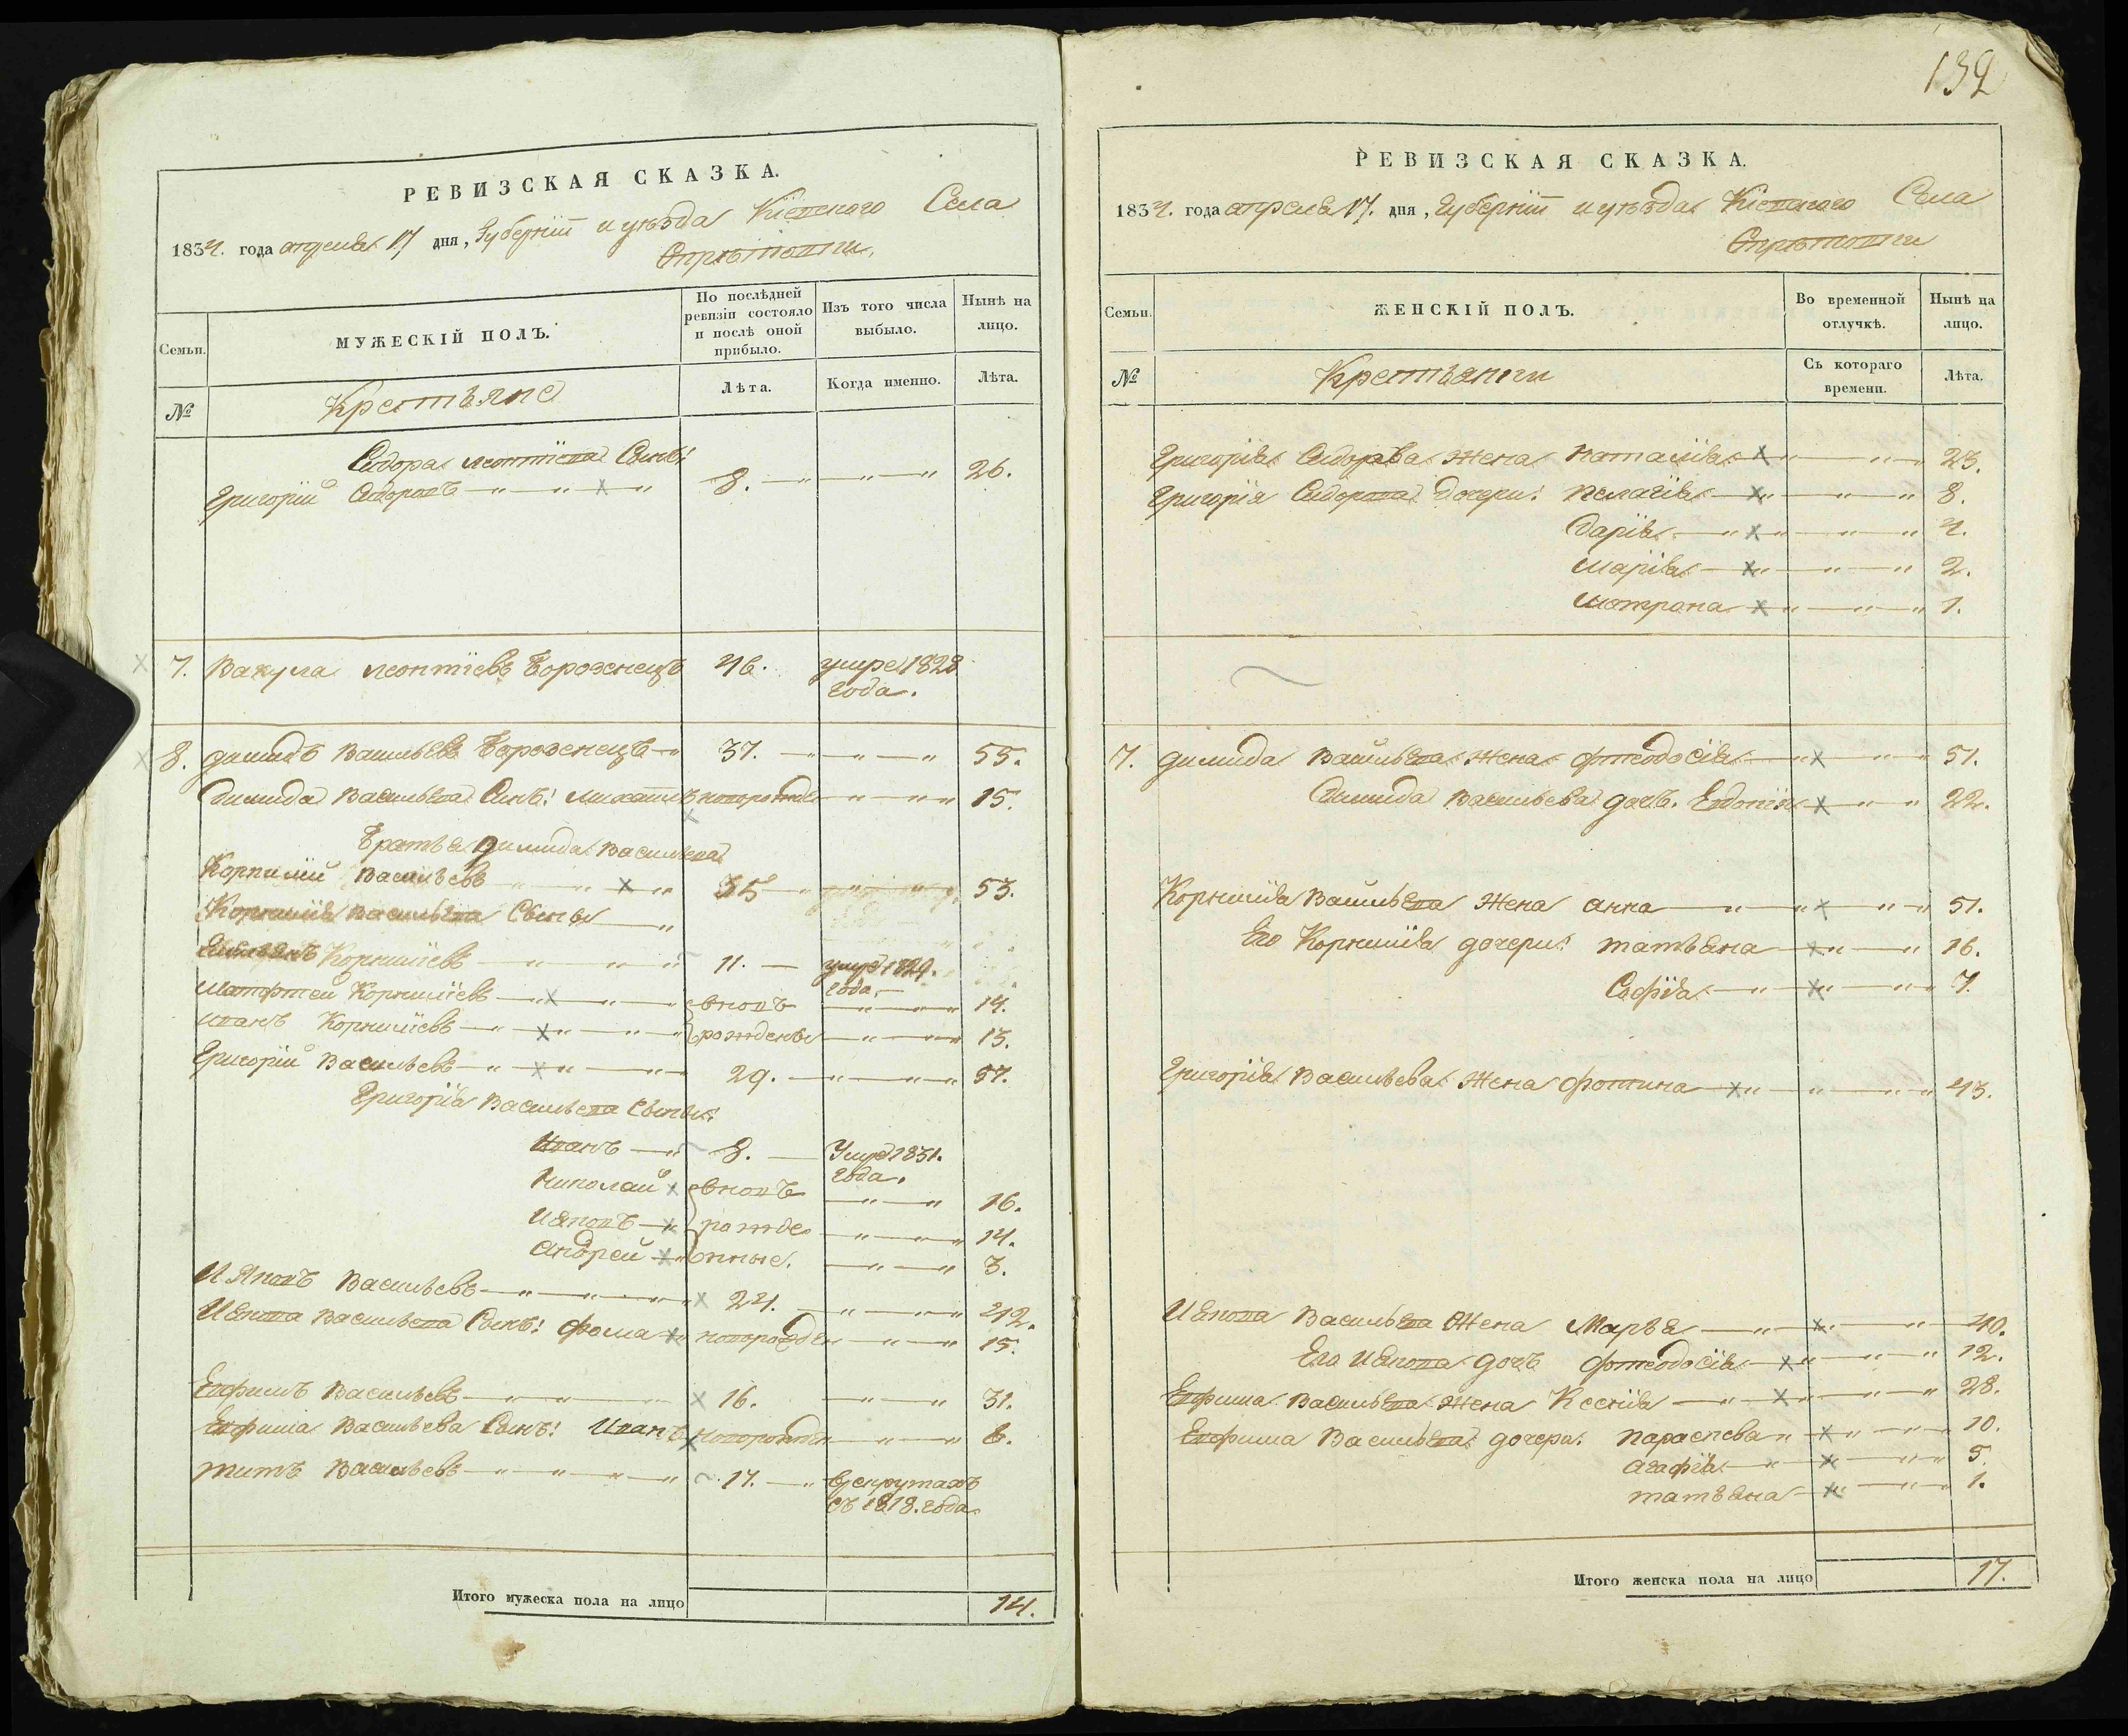 РЕВИЗСКАЯ СКАЗКА.
1834. года апреля 17 дня, Губернiи и уѣзда Кіевскаго Села
Семьи.
МУЖЕСКІЙ ПОЛЪ.
По послѣдней ревизіи состояло и послѣ оной прибыло.
Изъ того числа выбыло.
Нынѣ на лицо.
№
Крестьяне
Лѣта.
Когда именно.
Лѣта.
Сидора Леонтіева Сынъ:
Григорій Сидоровъ 8. 26.
7. Вакула Леонтіевъ Борозенецъ 46. умре 1828
года.
8. Демидъ Васильевъ Борозенецъ 37. 55.
Демида Васильева Сынъ: Михаилъ новорожден 15.
Братья Демида Васильева
Корнилій Васильевъ 35 53.
Корнилія Васильева Сыны
Корниліевъ 11. умре 1829.
года.
Матфтей Корниліевъ вновь 14.
Иванъ Корниліевъ рождены 13.
Григорій Васильевъ 29. 57.
Григорія Васильева Сыны:
Иванъ 8. Умре 1831.
года.
Николай вновь 16.
Ияковъ рожде 14.
Андрей нные. 3.
Ияковъ Васильевъ 24. 42.
Иякова Васильева Сынъ: Фома новорожден 15.
Евфимъ Васильевъ 16. 31.
Евфима Васильева Сынъ: Иванъ новорожден 6.
Титъ Васильевъ 17. Врекрутахъ
съ 1818. года
Итого мужеска пола на лицо 14.
132
РЕВИЗСКАЯ СКАЗКА.
1834. года апреля 17. дня, Губернiи и уѣзда Кіевскаго Села
Семьи.
ЖЕНСКІЙ ПОЛЪ.
Во временной отлучкѣ.
Нынѣ на лицо.
№
Крестьянки
Съ котораго времени.
Лѣта.
Григорія Сидорова жена Наталія 23.
Григорія Сидорова дочери: Пелагія 8.
Дарія 4.
Марія 2.
Матрона 1.
7. Демида Васильева жена Фтеодосія 51.
Демида Васильева дочь. Евдокія 22.
Корнилія Васильева жена Анна 51.
Его Корнилія дочери: Татьяна 16.
Софія 7.
Григорія Васильева жена Фотина 43.
Иякова Васильева жена Марья 40.
Его Иякова дочь Фтеодосія 12.
Евфима Васильева жена Ксенія 28.
Евфима Васильева дочери: Параскева 10.
Агафія 5.
Татьяна 1.
Итого женска пола на лицо 17.